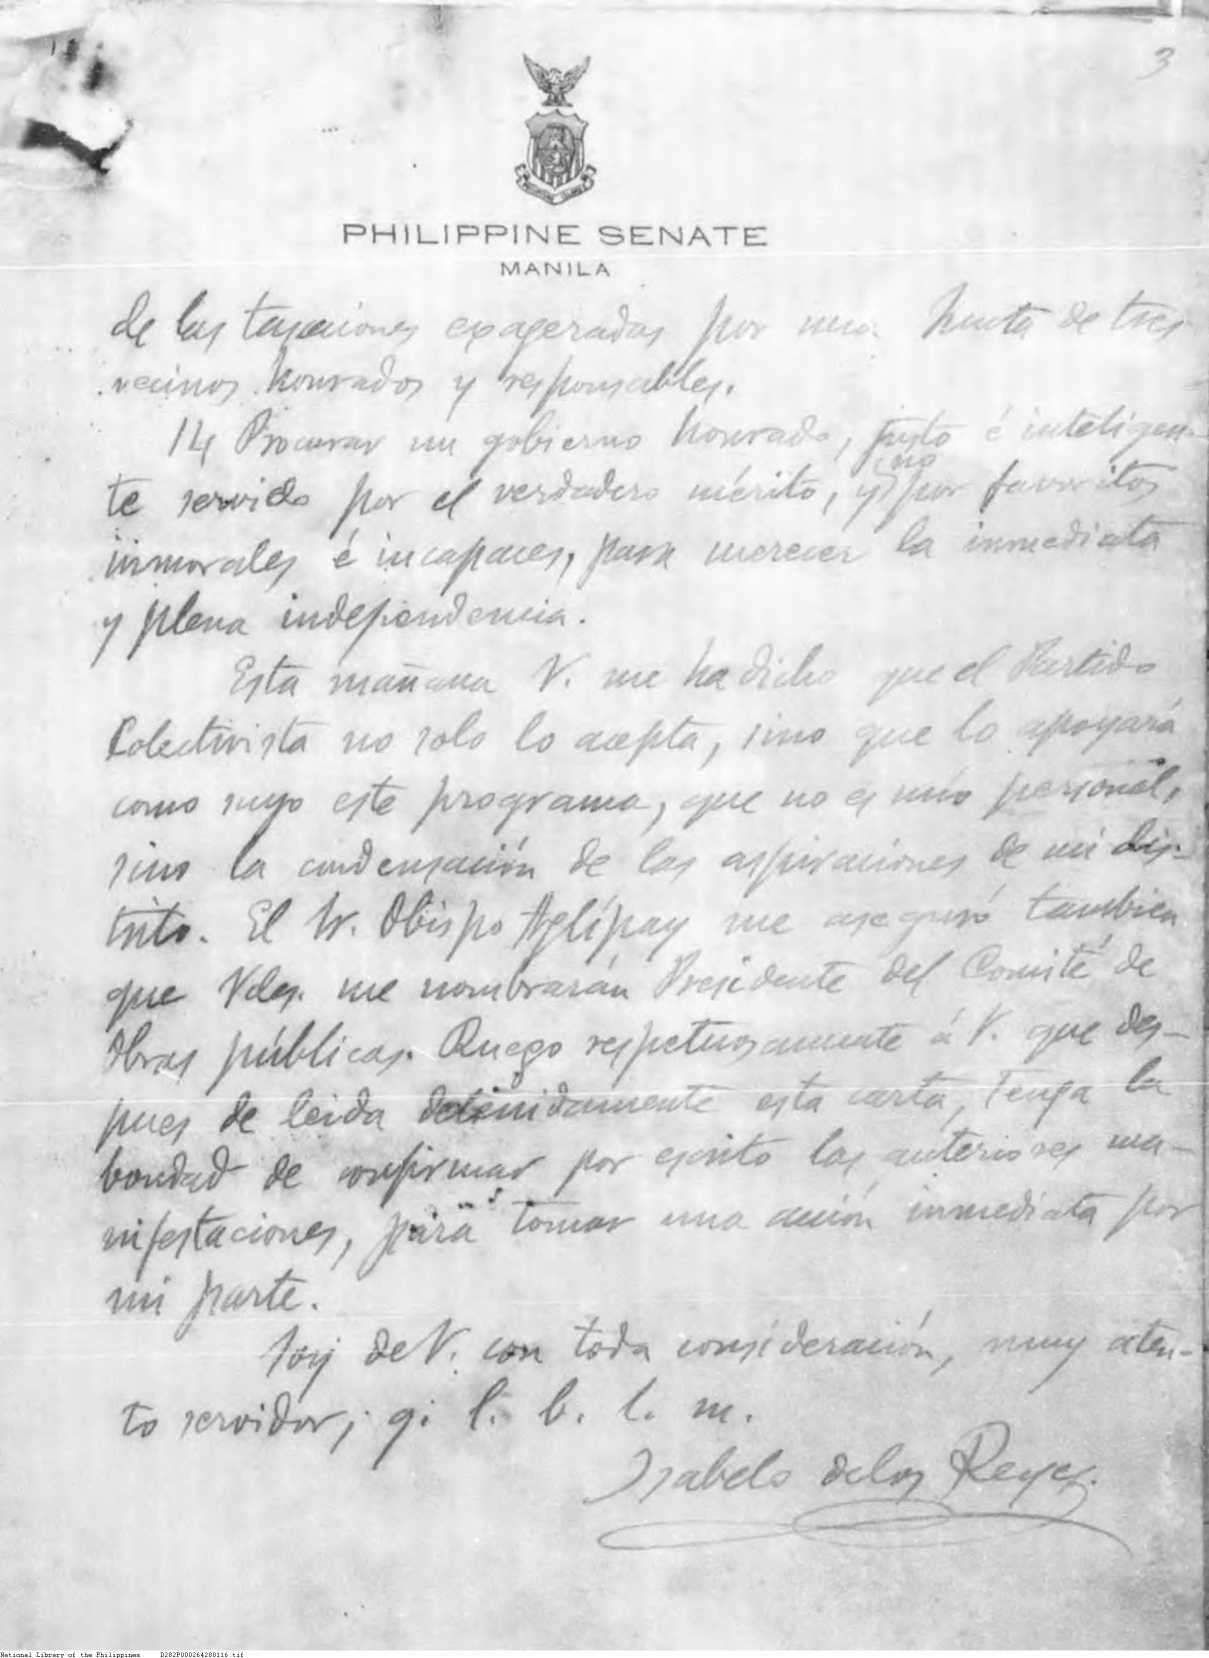 3
PHILIPPINE SENATE
MANILA
de las tasaciones exageradas por una Junta de tres
vecinos honrados y responsables.
14 Procurar un gobierno honrado, justo é inteligen-
te servido por el verdadero mérito, y no por favoritos
inmorales é incapaces, para merecer la inmediata
y plena independencia.
Esta mañana V. me ha dicho que el Partido
Colectivista no solo lo acepta, sino que lo apoyará
como suyo este programa, que no es mío personal,
sino la condensación de las aspiraciones de mi dis-
trito. El Sr. Obispo Aglípay me aseguró tambien
que Vdes. me nombrarán Presidente del Comité de
Obras públicas. Ruego respetuosamente á V. que des-
pues de leida detenidamente esta carta, tenga la
bondad de confirmar por escrito las anteriores ma-
nifestaciones, para tomar una acción inmediata por
mi parte.
Soy de V. con toda consideración, muy aten-
to servidor, q. l. b. l. m.
Isabelo de los Reyes.
National Library of the Philippines D282P000264280116.tif